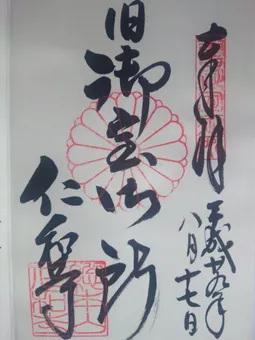 奉拝
平成廿五年
八月十七日
旧御室御所
仁和寺